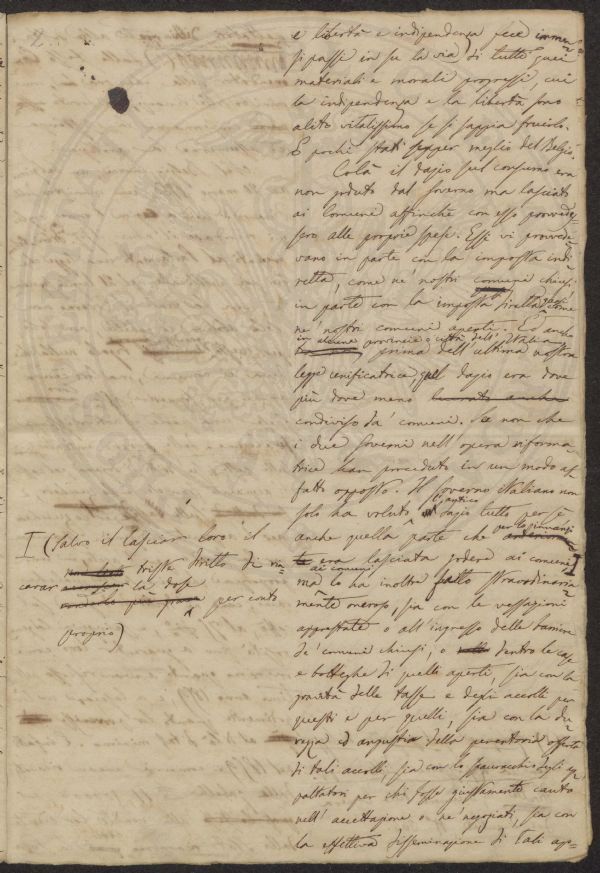 e libertà e indipendenza fece immen=
si passi in su la via di tutti quei
materiali e morali progressi, cui
la indipendenza e la libertà sono
alito vitalissimo se si sappia fruirlo.
E pochi stati seppero meglio del Belgio.
Colà il dazio sul consumo era
non goduto dal governo ma lasciato
ai Comuni affinchè con esso provvedes=
sero alle proprie spese. Essi vi provvede=
vano in parte con la imposta indi=
retta, come ne' nostri comuni chiusi,
in parte con la imposta diretta, quasi come
ne' nostri comuni aperti. Ed anche
in alcune provincie o città dell'Italia
prima dell'ultima nostra
legge unificatrice quel dazio era dove
più dove meno
condiviso da' comuni. Se non che
i due Governi nell'opera riforma=
trice han proceduto in un modo af=
fatto opposto. Il governo Italiano non
solo ha voluto il dazio tutto per sè
anche quella parte che per lo innanzi
era lasciata godere ai comuni I
ma lo ha inoltre ai comuni fatto straordinaria=
mente oneroso, sia con le vessazioni
apprestate o all'ingresso delle barriere
de' comuni chiusi, o dentro le case
e botteghe di quelli aperti, sia con la
gravità delle tasse e degli accolli per
questi e per quelli, sia con la du=
rezza ed angustia della perentoria offerta
di tali accolli, sia con lo spauracchio degli ap=
paltatori per chi fosse giustamente cauto
nell'accettazione o ne' negoziati, sia con
la effettiva disseminazione di tali ap=
I (Salvo il lasciar loro il
triste dritto di rin=
carar la dose
per conto
proprio)